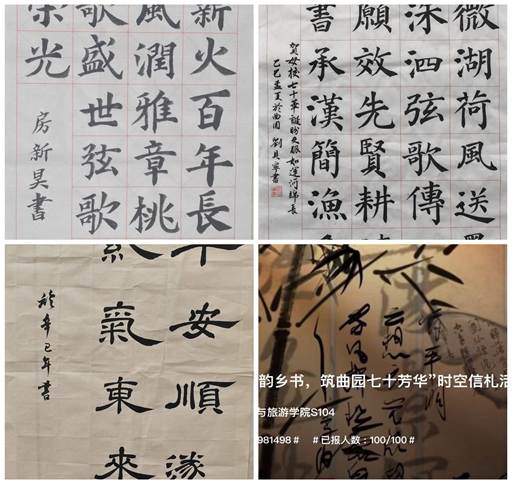 新火百年長
風潤雅章桃
歌盛世弦歌
光
房新昊書
微湖荷風送
深泗弦歌傳
願效先賢耕
書承漢簡漁
賀母校七十華誕盼文脈如運河綿長
乙巳孟夏於曲園 劉具寧書
安順遂
氣東來
於辛巳年書
韵乡书，筑曲园七十芳华”时空信札活
与旅游学院S104
981498＃ ＃已报人数：100/100＃